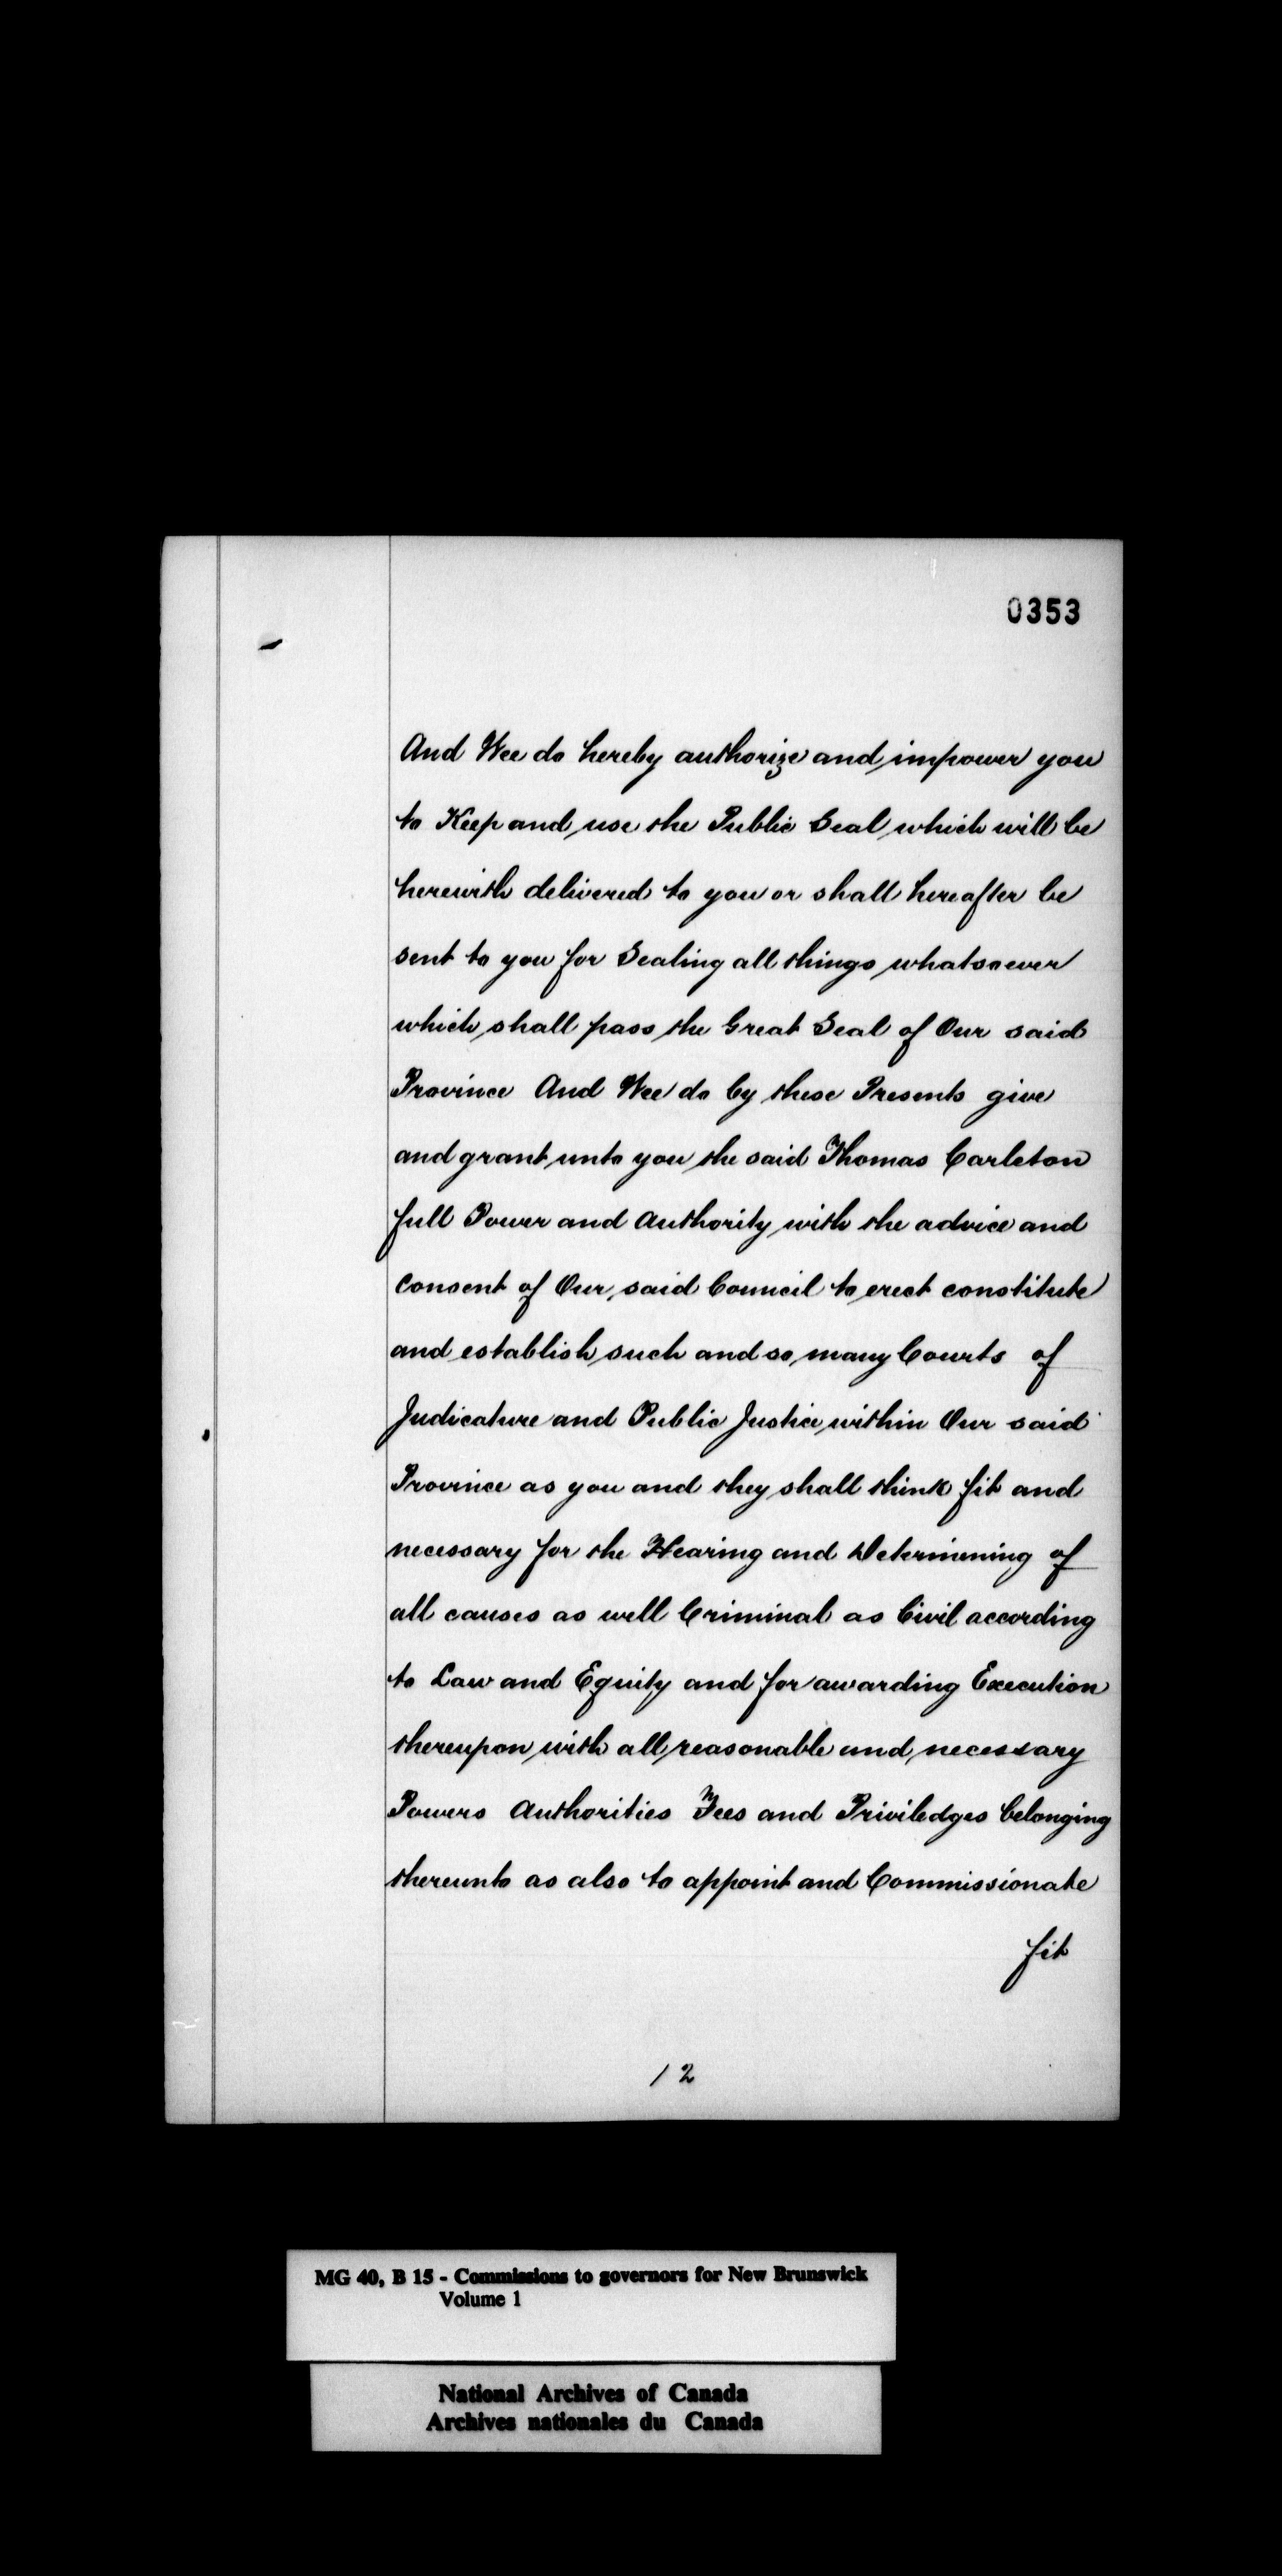 0353
And Wee do hereby authorize and impower you
to Keep and use the Public Seal which will be
herewith delivered to you or shall hereafter be
sent to you for Sealing all things whatsoever
which shall pass the Great Seal of Our said
Province And Wee do by these Presents give
and grant unto you the said Thomas Carleton
full Power and Authority with the advice and
Consent of Our said Council to erect constitute
and establish such and so many Courts of
Judicature and Public Justice within Our said
Province as you and they shall think fit and
necessary for the Hearing and Determining of
all causes as well Criminal as Civil according
to Law and Equity and for awarding Execution
thereupon with all reasonable and necessary
Powers Authorities Fees and Priviledges belonging
thereunto as also to appoint and Commissionate
fit
12
MG 40, B 15 - Commissions to governors for New Brunswick
Volume 1
National Archives of Canada
Archives nationales du Canada